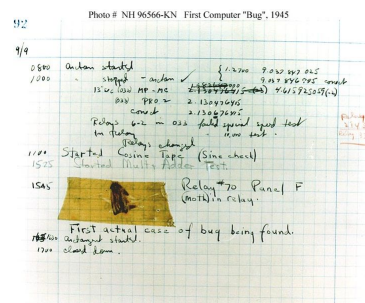 Photo # NH 96566-KN First Computer "Bug", 1945
92
9/9
0800 Antan started
1000 " stopped - antan ✓ { 1.2700 9.037 847 025
9.037 846 995 correct
13" uc (032) MP-MC 4.615925059(-2)
033 PRO 2 2.130476415
correct 2.130676415
Relays 6-2 in 033 failed special speed test
in relay " 10,000 test.
Relays changed
1100 Started Cosine Tape (Sine check)
1525 Started Multi Adder Test.
1545 Relay #70 Panel F
(moth) in relay.
First actual case of bug being found.
1630 antangent started.
1700 closed down.